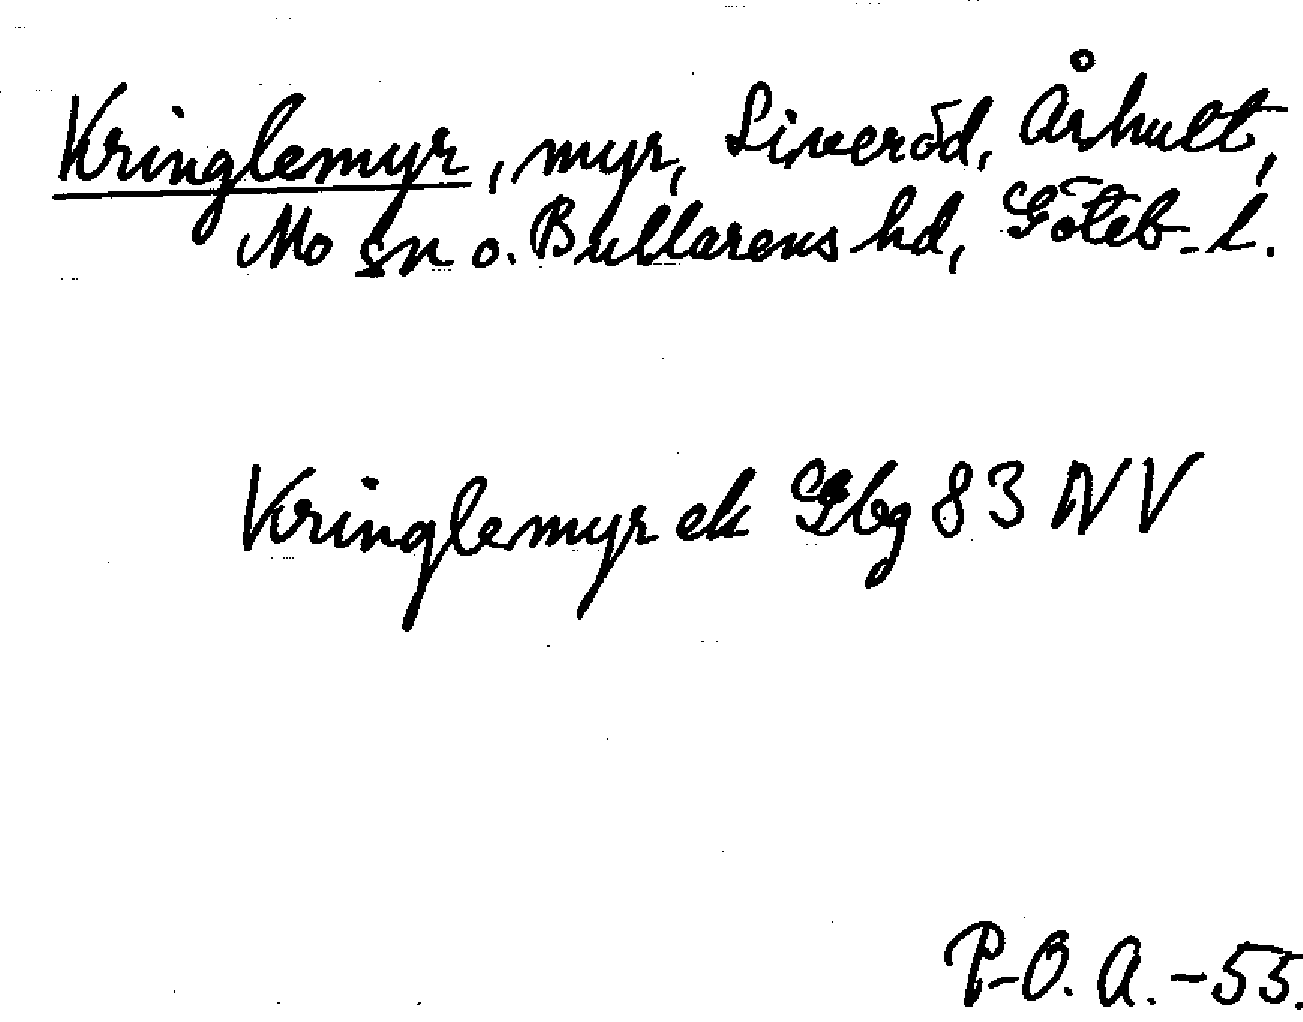 Kringlemyr, myr, Siveröd, Århult,
Mo sn o. Bullarens hd, Göteb. l.
Kringlemyr ek Gbg 83 NV
P-O. A. -55.